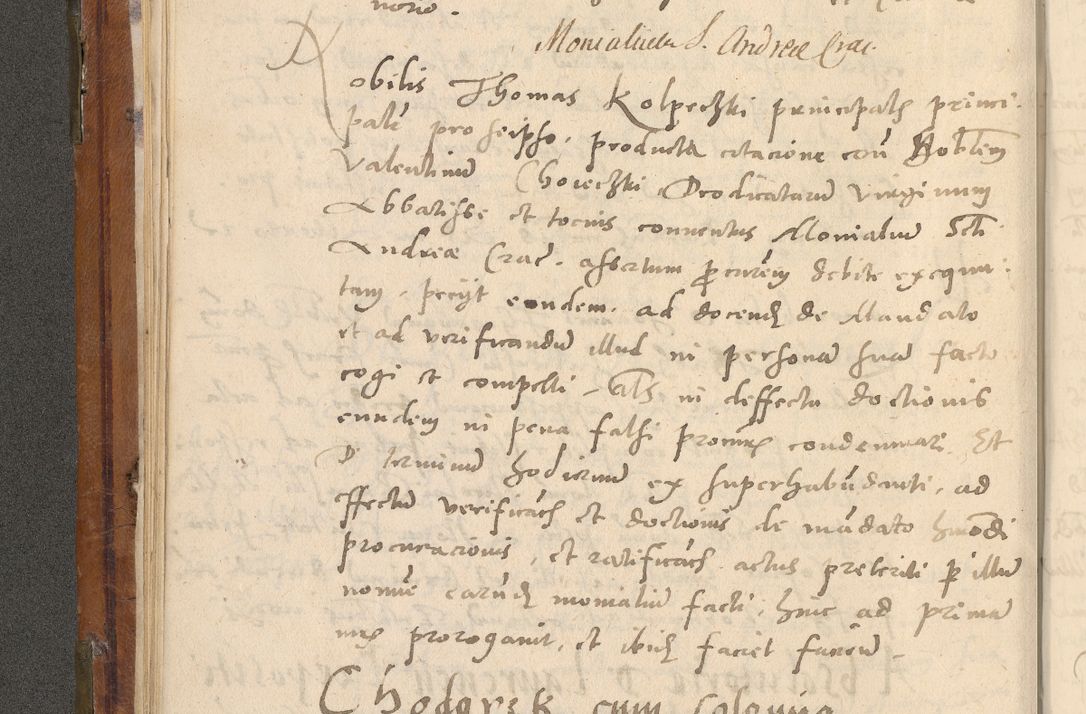 Monialium S. Andreae Crac.
Nobilis Thomas Kolpeczki principalis princi
palr pro seipso, producta citacione con Nobilem
Valentinum Choieczki Deodicatarum virginum
Abbatisse et tocius conuentus Monialium Scti
Andreae Crac. assertum procurem debite exequu
tam, pecijt eundem ad docendum de Mandato
et ad verificandum illud in personam suam facto
cogi et compelli, als in deffectu doctionis
eundem in pena falsi procuris condemnari. Et
D. terminum hodiernum ex superhabundanti, ad
effectum verificacis et doctionis de mandato hmodi
procuracionis, et ratificacis actus preteriti per illum
nomine earundem monialium facti, hinc ad primam
iuris prorogauit, et ibidem faciet facien.
cum